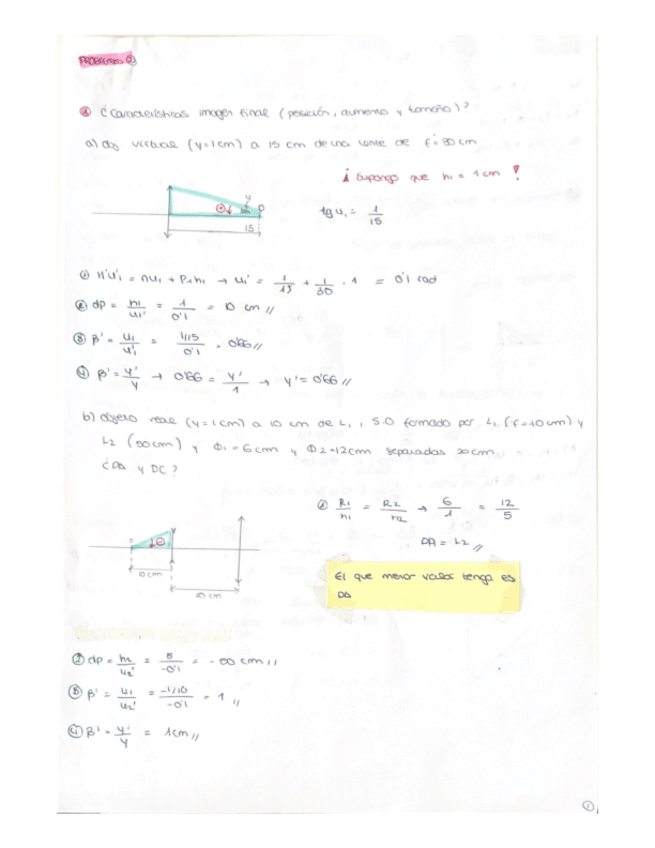 PROBLEMAS
① ¿Características imagen final (posición, aumento y tamaño)?
a) obj virtual (y=1cm) a 15 cm de una lente de f'=30 cm
¡ Supongo que h₁ = 1 cm !
y
15
tg u₁ = 1/15
① n'u'₁ = nu₁ + P₁h₁ → u₁' = 1/15 + 1/30 · 1 = 0'1 rad
② dp = h₁/u₁' = 1/0'1 = 10 cm //
③ β' = u₁/u₁' = 1/15/0'1 = 0'66 //
④ β' = y'/y → 0'66 = y'/1 → y' = 0'66 //
b) objeto real (y=1cm) a 10 cm de L₁, S.O formado por L₁ (f'=10cm) y
L₂ (50cm) y Φ₁=6cm y Φ2=12cm separadas
¿DA y DC?
① R₁/h₁ = R2/h2 → 6/1 = 12/5
DA = L2 //
10 cm
El que menor valor tenga es
DA
② dp = h₂/u₂' = 5/-0'1 = -50 cm //
③ β' = u₁/u₂' = -1/10/-0'1 = 1 //
④ β' = y'/y = 1cm //
1